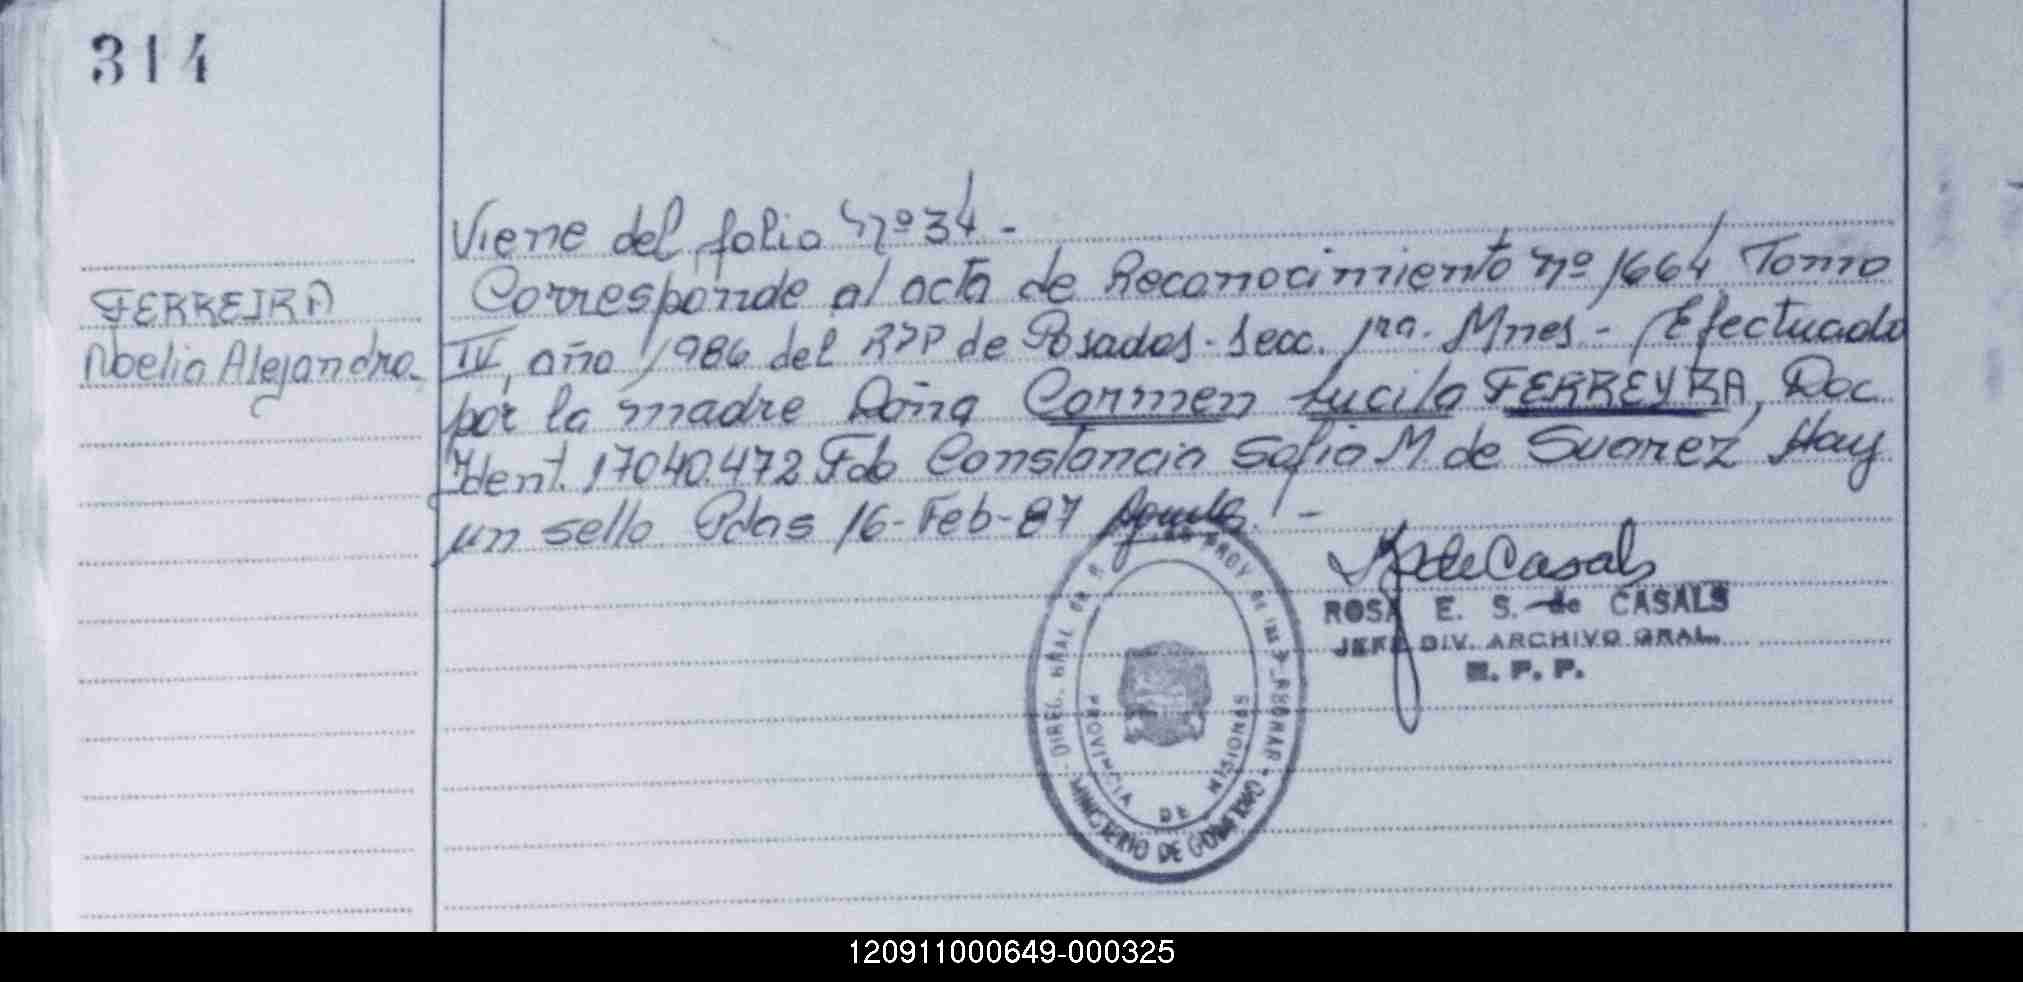 314
FERREIRA
Noelia Alejandra.
Viene del folio Nº 34 -
Corresponde al acta de Reconocimiento nº 1664 Tomo
IV, año 1986 del RPP de Posadas - Secc. 1ra. Mnes - Efectuado
por la madre Doña Carmen Lucila FERREYRA, Doc
Ident. 17040.472 Fdo Constancia Sofia M de Suarez Hay
un sello Pdas 16-Feb-87
de Casals
ROSA E. S. de CASALS
JEFE DIV. ARCHIVO GRAL.
R. P. P.
DIREC. GRAL DE R PROV. DE LAS PERSONAS
PROVINCIA DE MISIONES
MINISTERIO DE GOBIERNO
120911000649-000325